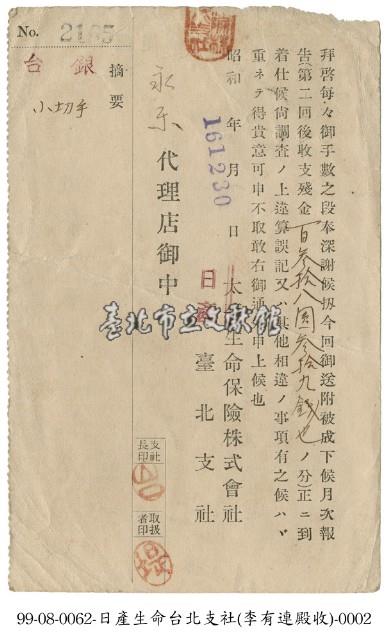 No. 2165
摘要
台銀
小切手
拜啓每々御手數之段奉深謝候扨今回御送附被成下候月次報
告(第二回後收支殘金百参拾八圓参拾九錢也ノ分)正ニ到
着仕候尙調査ノ上違算誤記又ハ其他相違ノ事項有之候ハヾ
重ネテ得貴意可申不取敢右御通知申上候也
昭和 年 月 日
161230
太 生命保險株式會社
日產
臺北支社
永樂代理店御中
臺北市立文獻館
支社長印
取扱者印
99-08-0062-日產生命台北支社(李有連殿收)-0002